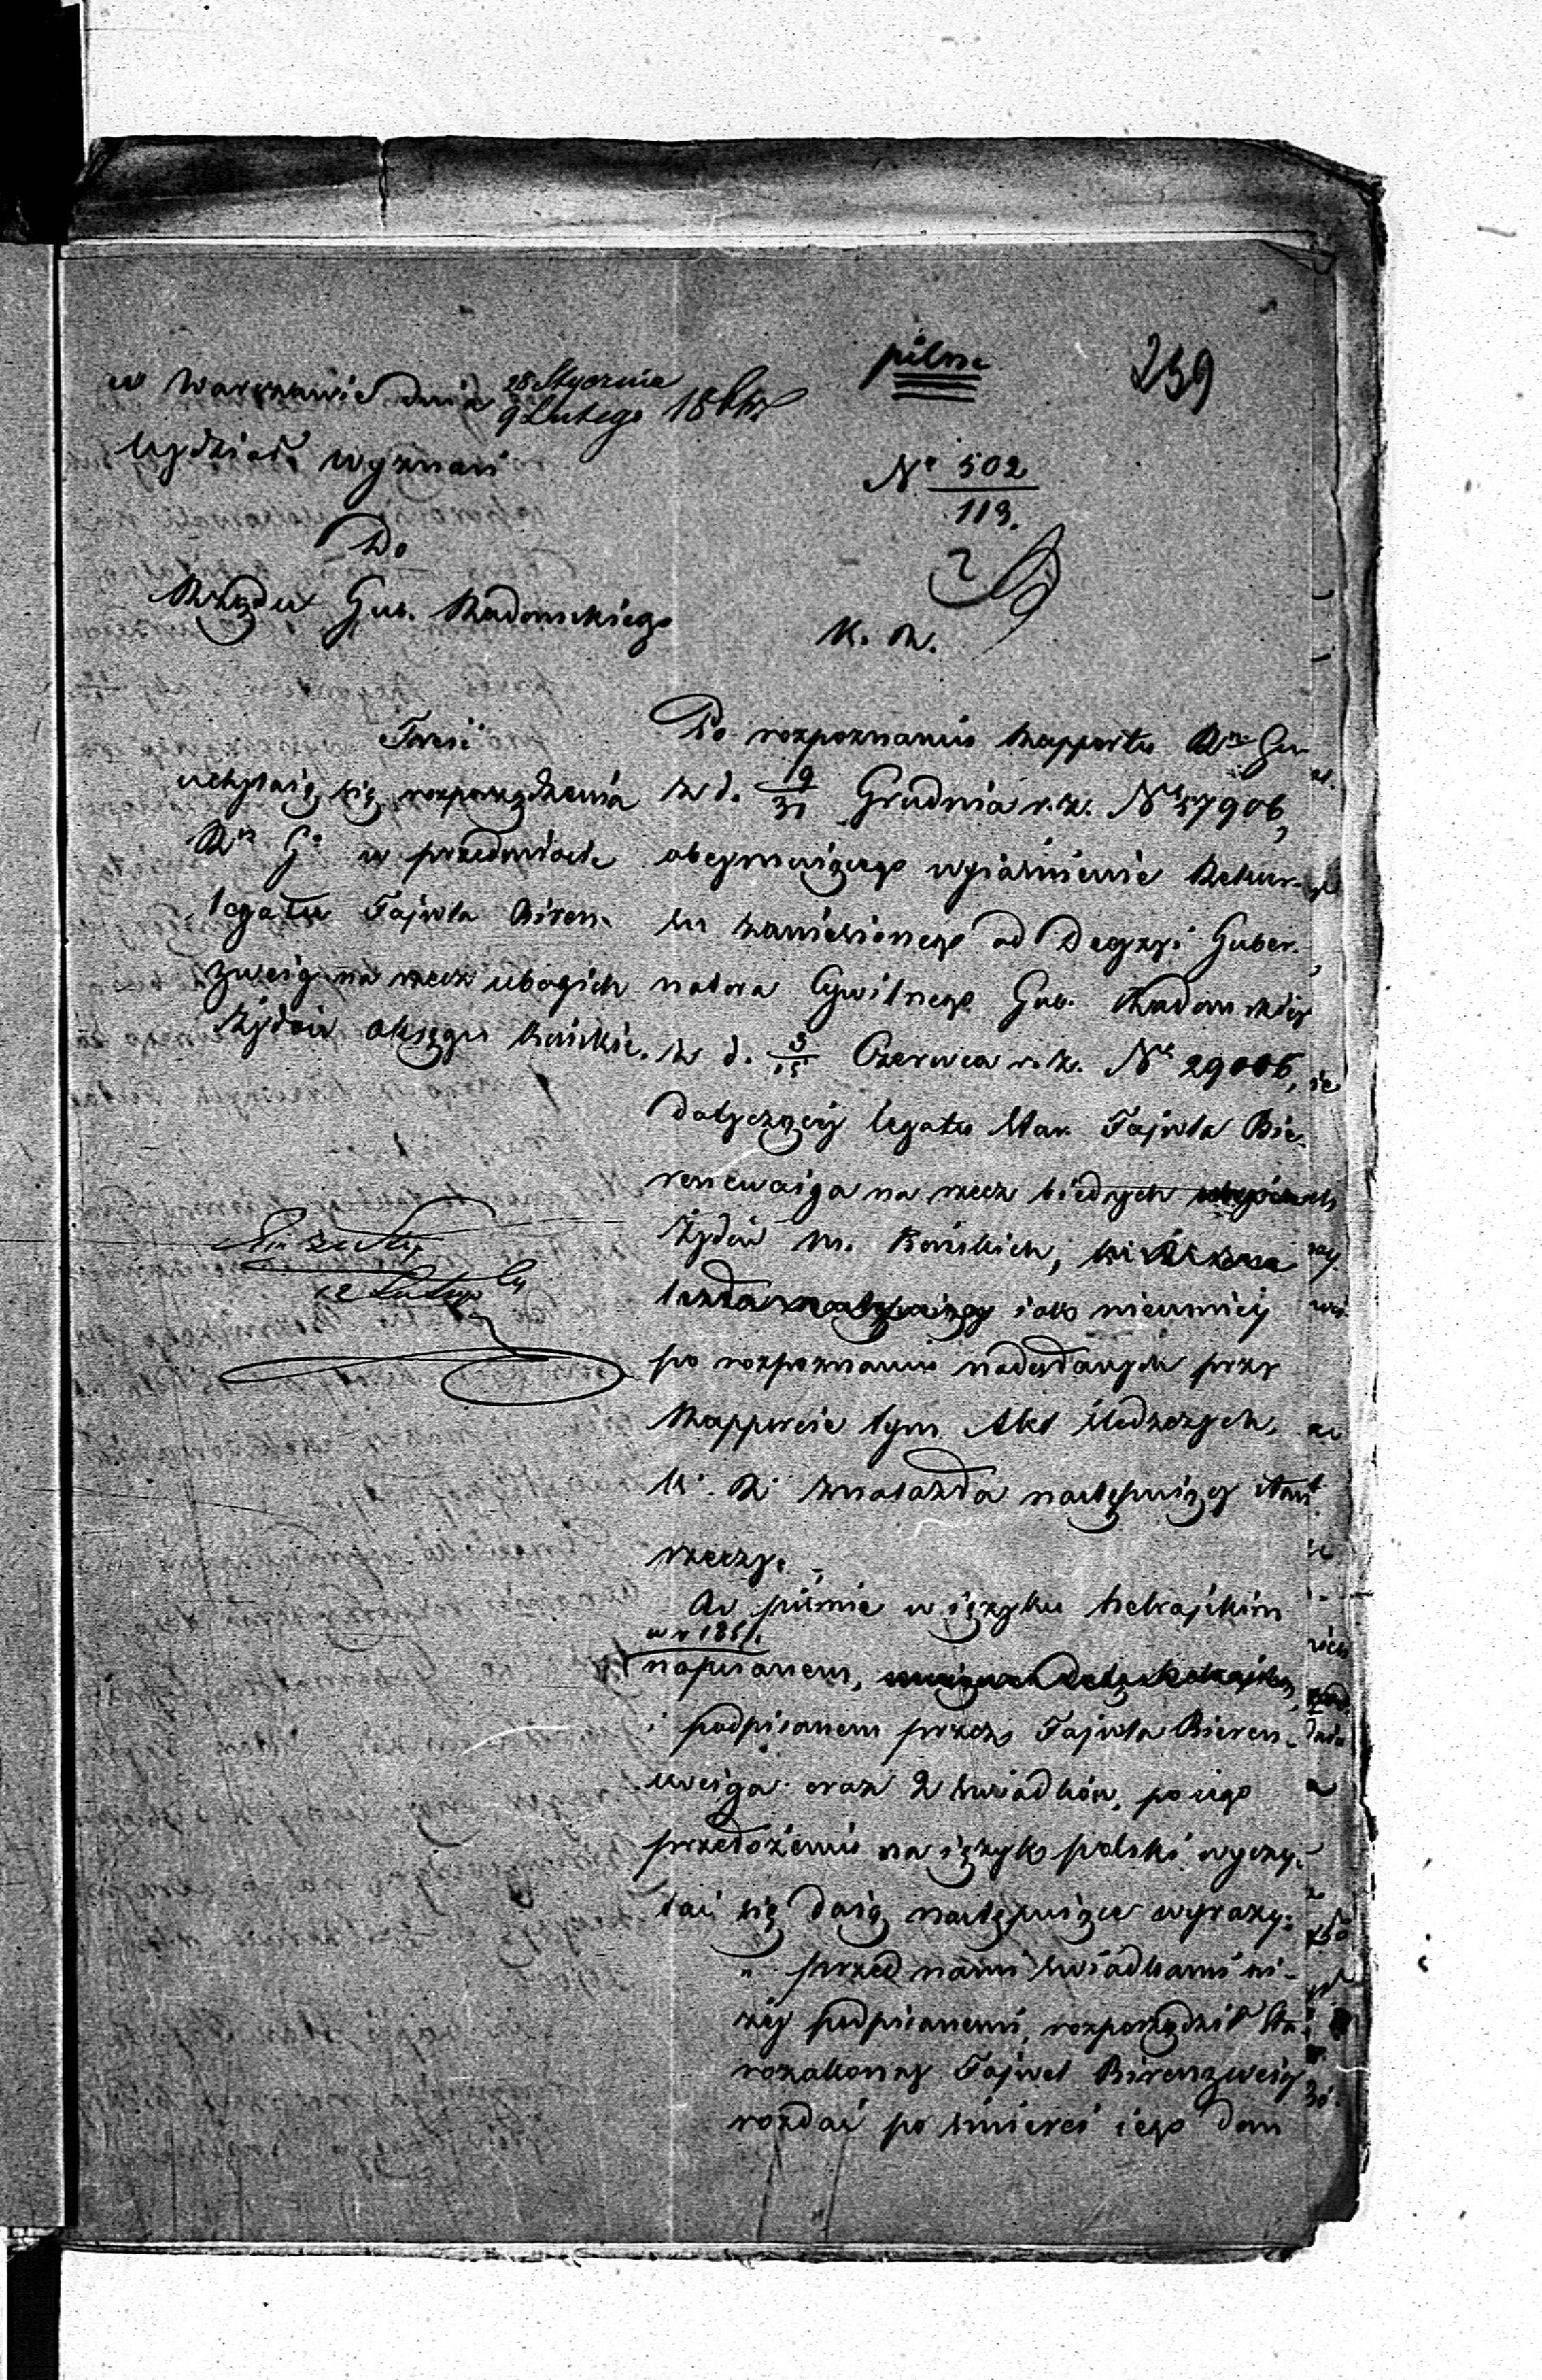 pilne
239
w Warszawie dnia 28 Stycznia
9 Lutego 18
Wydział Wyznań
No 502
113.
Do
Rządu Gub. Radomskiego
K. R.
Treść
uchylaią się rozporządzenia
Ru Go w przedmiocie
legatu Fajwla Biren-
zweig na rzecz ubogich
Żydów okręgu Końskie.
12 Lutego
Po rozpoznaniu Rapportu Rdu Gu
z d. 19/31 Grudnia r. z. No 57906,
obeymuiącego wyiaśnienie Rekur-
su zaniesionego od Decyzyi Guber-
natora Cywilnego Gub. Radomskiey
z d. 3/15 Czerwca r. z. No 29006,
dotyczącey legatu Star. Fajwla Bie-
rencwaiga na rzecz biednych
Żydów m. Końskich,
iako niemniey
po rozpoznaniu nadesłanych przy
Rapporcie tym Akt śledczych,
K. R. znalazła następuiący stan
rzeczy.
W piśmie w ięzyku hebrajskim
w r 185
napisanem,
i podpisanem przez Fajwla Bieren-
cweiga oraz 2 świadków, po iego
przełożeniu na ięzyk polski wyczy-
tać się daią następuiące wyrazy:
„ przed nami świadkami ni-
żey podpisanemi, rozporządził Sta-
rozakonny Fajwel Birenzweig
rozdać po śmierci iego dom